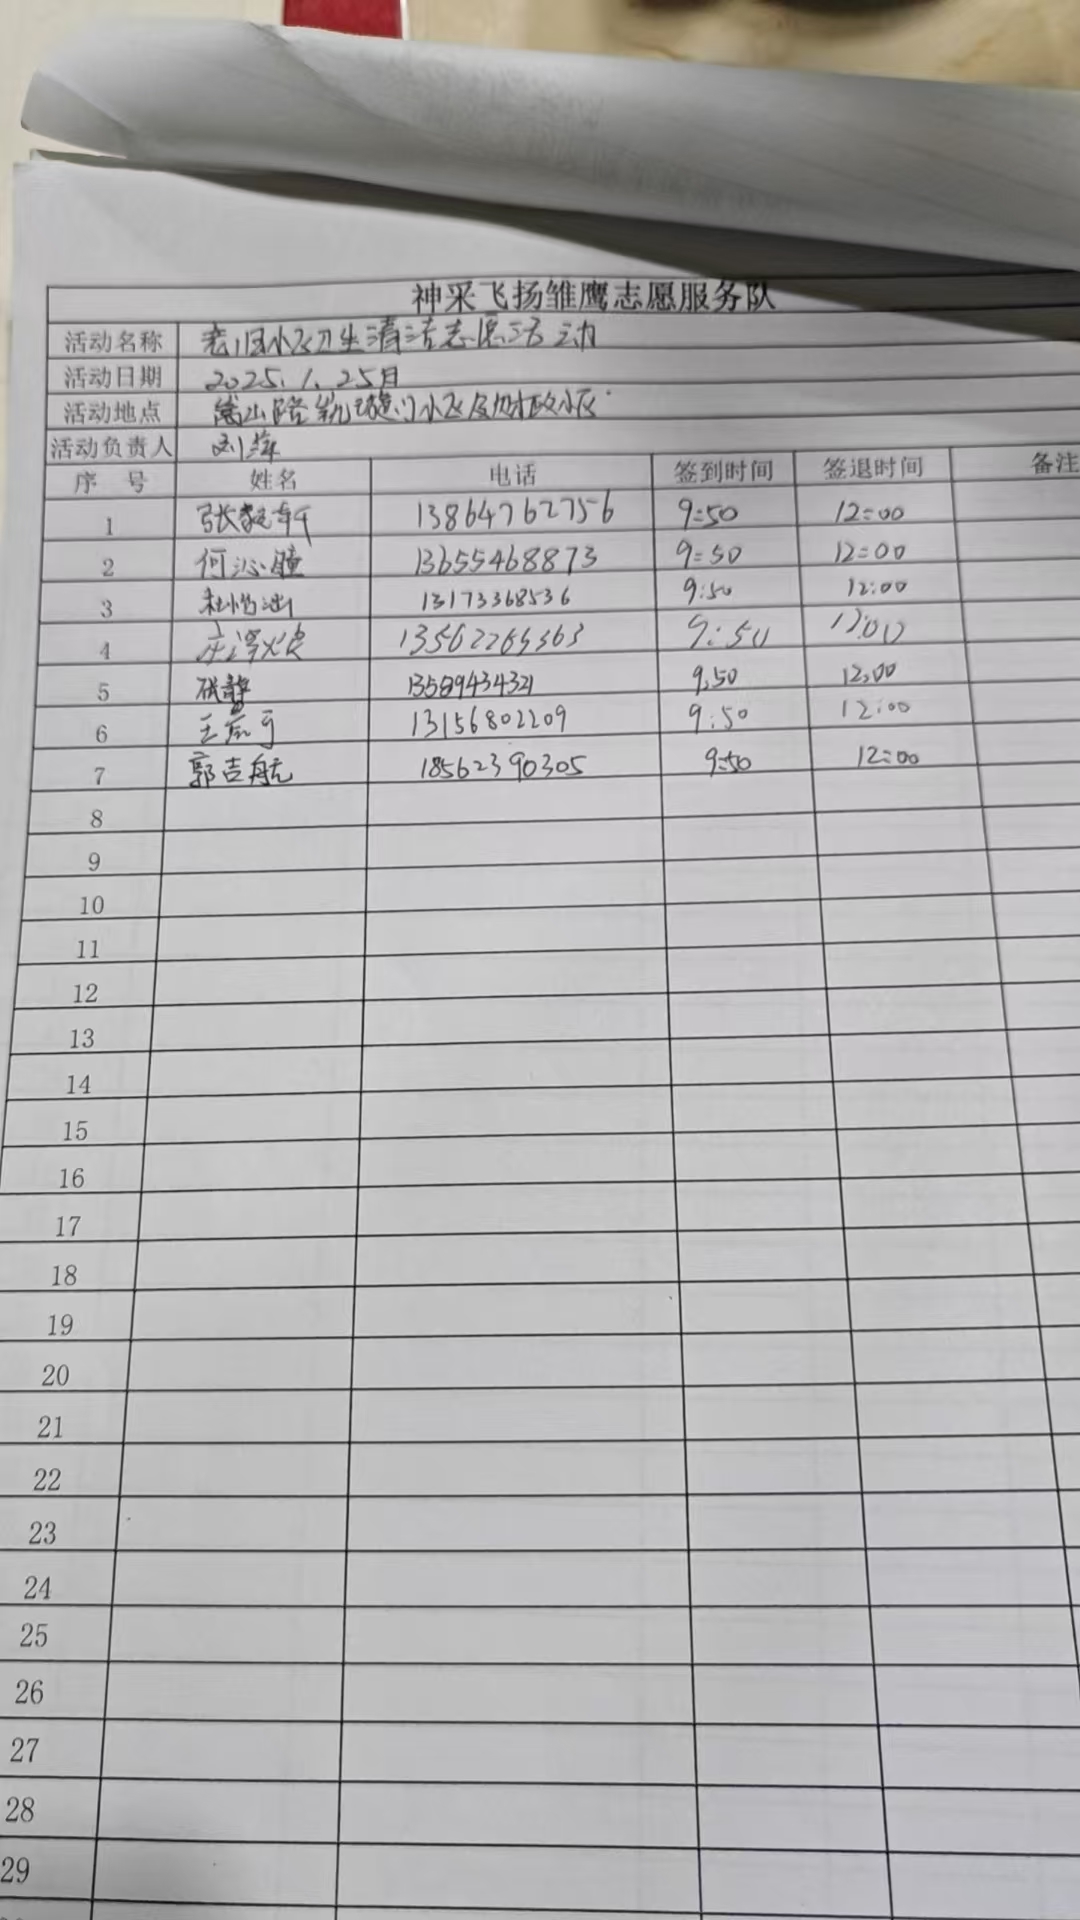 神采飞扬雏鹰志愿服务队
活动名称 老旧小区卫生清洁志愿活动
活动日期 2025.1.25日
活动地点 嵩山路 小区及财政小区
活动负责人 刘萍
序号 姓名 电话 签到时间 签退时间 备注
1 张轩 13864762756 9:50 12:00
2 何沁瞳 13655468873 9:50 12:00
3 杜 13173368536 9:50 12:00
4 庄泽 9:50 12:00
5 13589434321 9:50 12:00
6 王 13156802209 9:50 12:00
7 郭吉航 18562390305 9:50 12:00
8
9
10
11
12
13
14
15
16
17
18
19
20
21
22
23
24
25
26
27
28
29